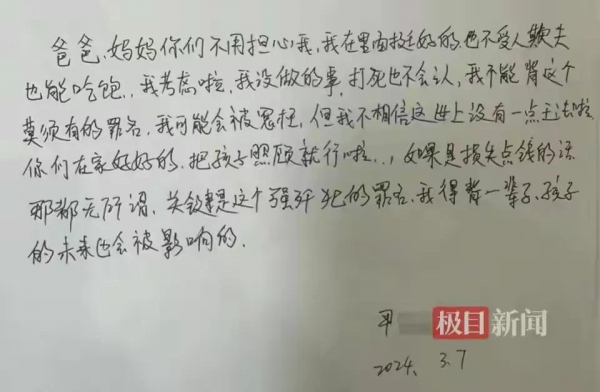 爸爸,妈妈你们不用担心我,我在里面挺好的,也不受人欺负
也能吃饱,我考虑啦,我没做的事,打死也不会认,我不能背这个
莫须有的罪名,我可能会被冤枉,但我不相信这世上没有一点王法啦
你们在家好好的,把孩子照顾就行啦..,如果是损失点钱的话
那都无所谓,关键是这个强奸犯的罪名,我得背一辈子,孩子
的未来也会被影响的.
极目新闻
2024. 3.7